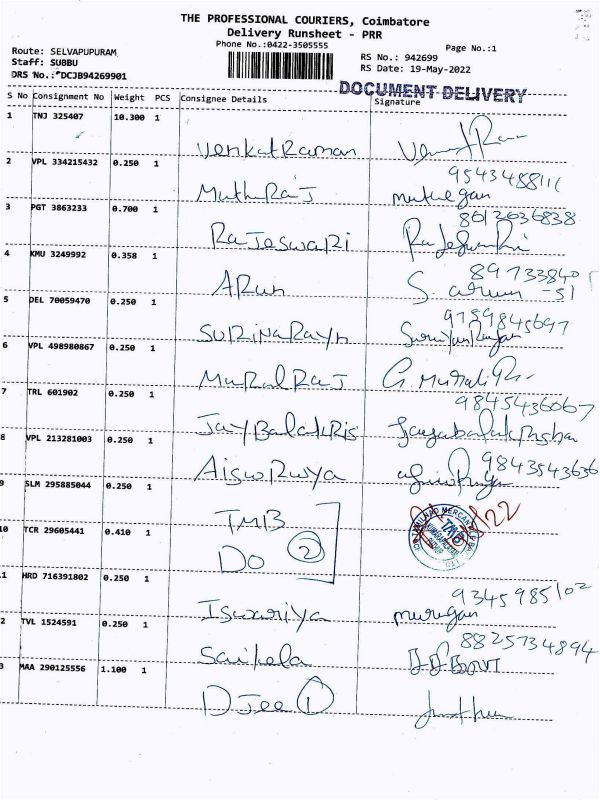 THE PROFESSIONAL COURIERS, Coimbatore
Delivery Runsheet - PRR
Phone No.:0422-3505555
Page No.:1
Route: SELVAPUPURAM
Staff: SUBBU
DRS No.: DCJB94269901
RS No.: 942699
RS Date: 19-May-2022
DOCUMENT DELIVERY
S No Consignment No Weight PCS Consignee Details Signature
1 TNJ 325407 10.300 1
VenkatRaman
2 VPL 334215432 0.250 1 9543488111
MuthRaJ
3 PGT 3863233 0.700 1 8612636838
RaJeswaRi
4 KMU 3249992 0.358 1
ARun S. arun
5 DEL 70059470 0.250 1 9789845697
SURiNaRayn
6 VPL 498980867 0.250 1
MuRalRaJ G. Murali
7 TRL 601902 0.250 1 9845436067
JayBalakRis Jayabalakrisha
8 VPL 213281003 0.250 1 9843543636
AiswRwya
9 SLM 295885044 0.250 1
TMB
10 TCR 29605441 0.410 1
DO 2
1 HRD 716391802 0.250 1 9345985102
Iswariya murugan
2 TVL 1524591 0.250 1 8825734894
Saikala
3 MAA 290125556 1.100 1
DJee 1